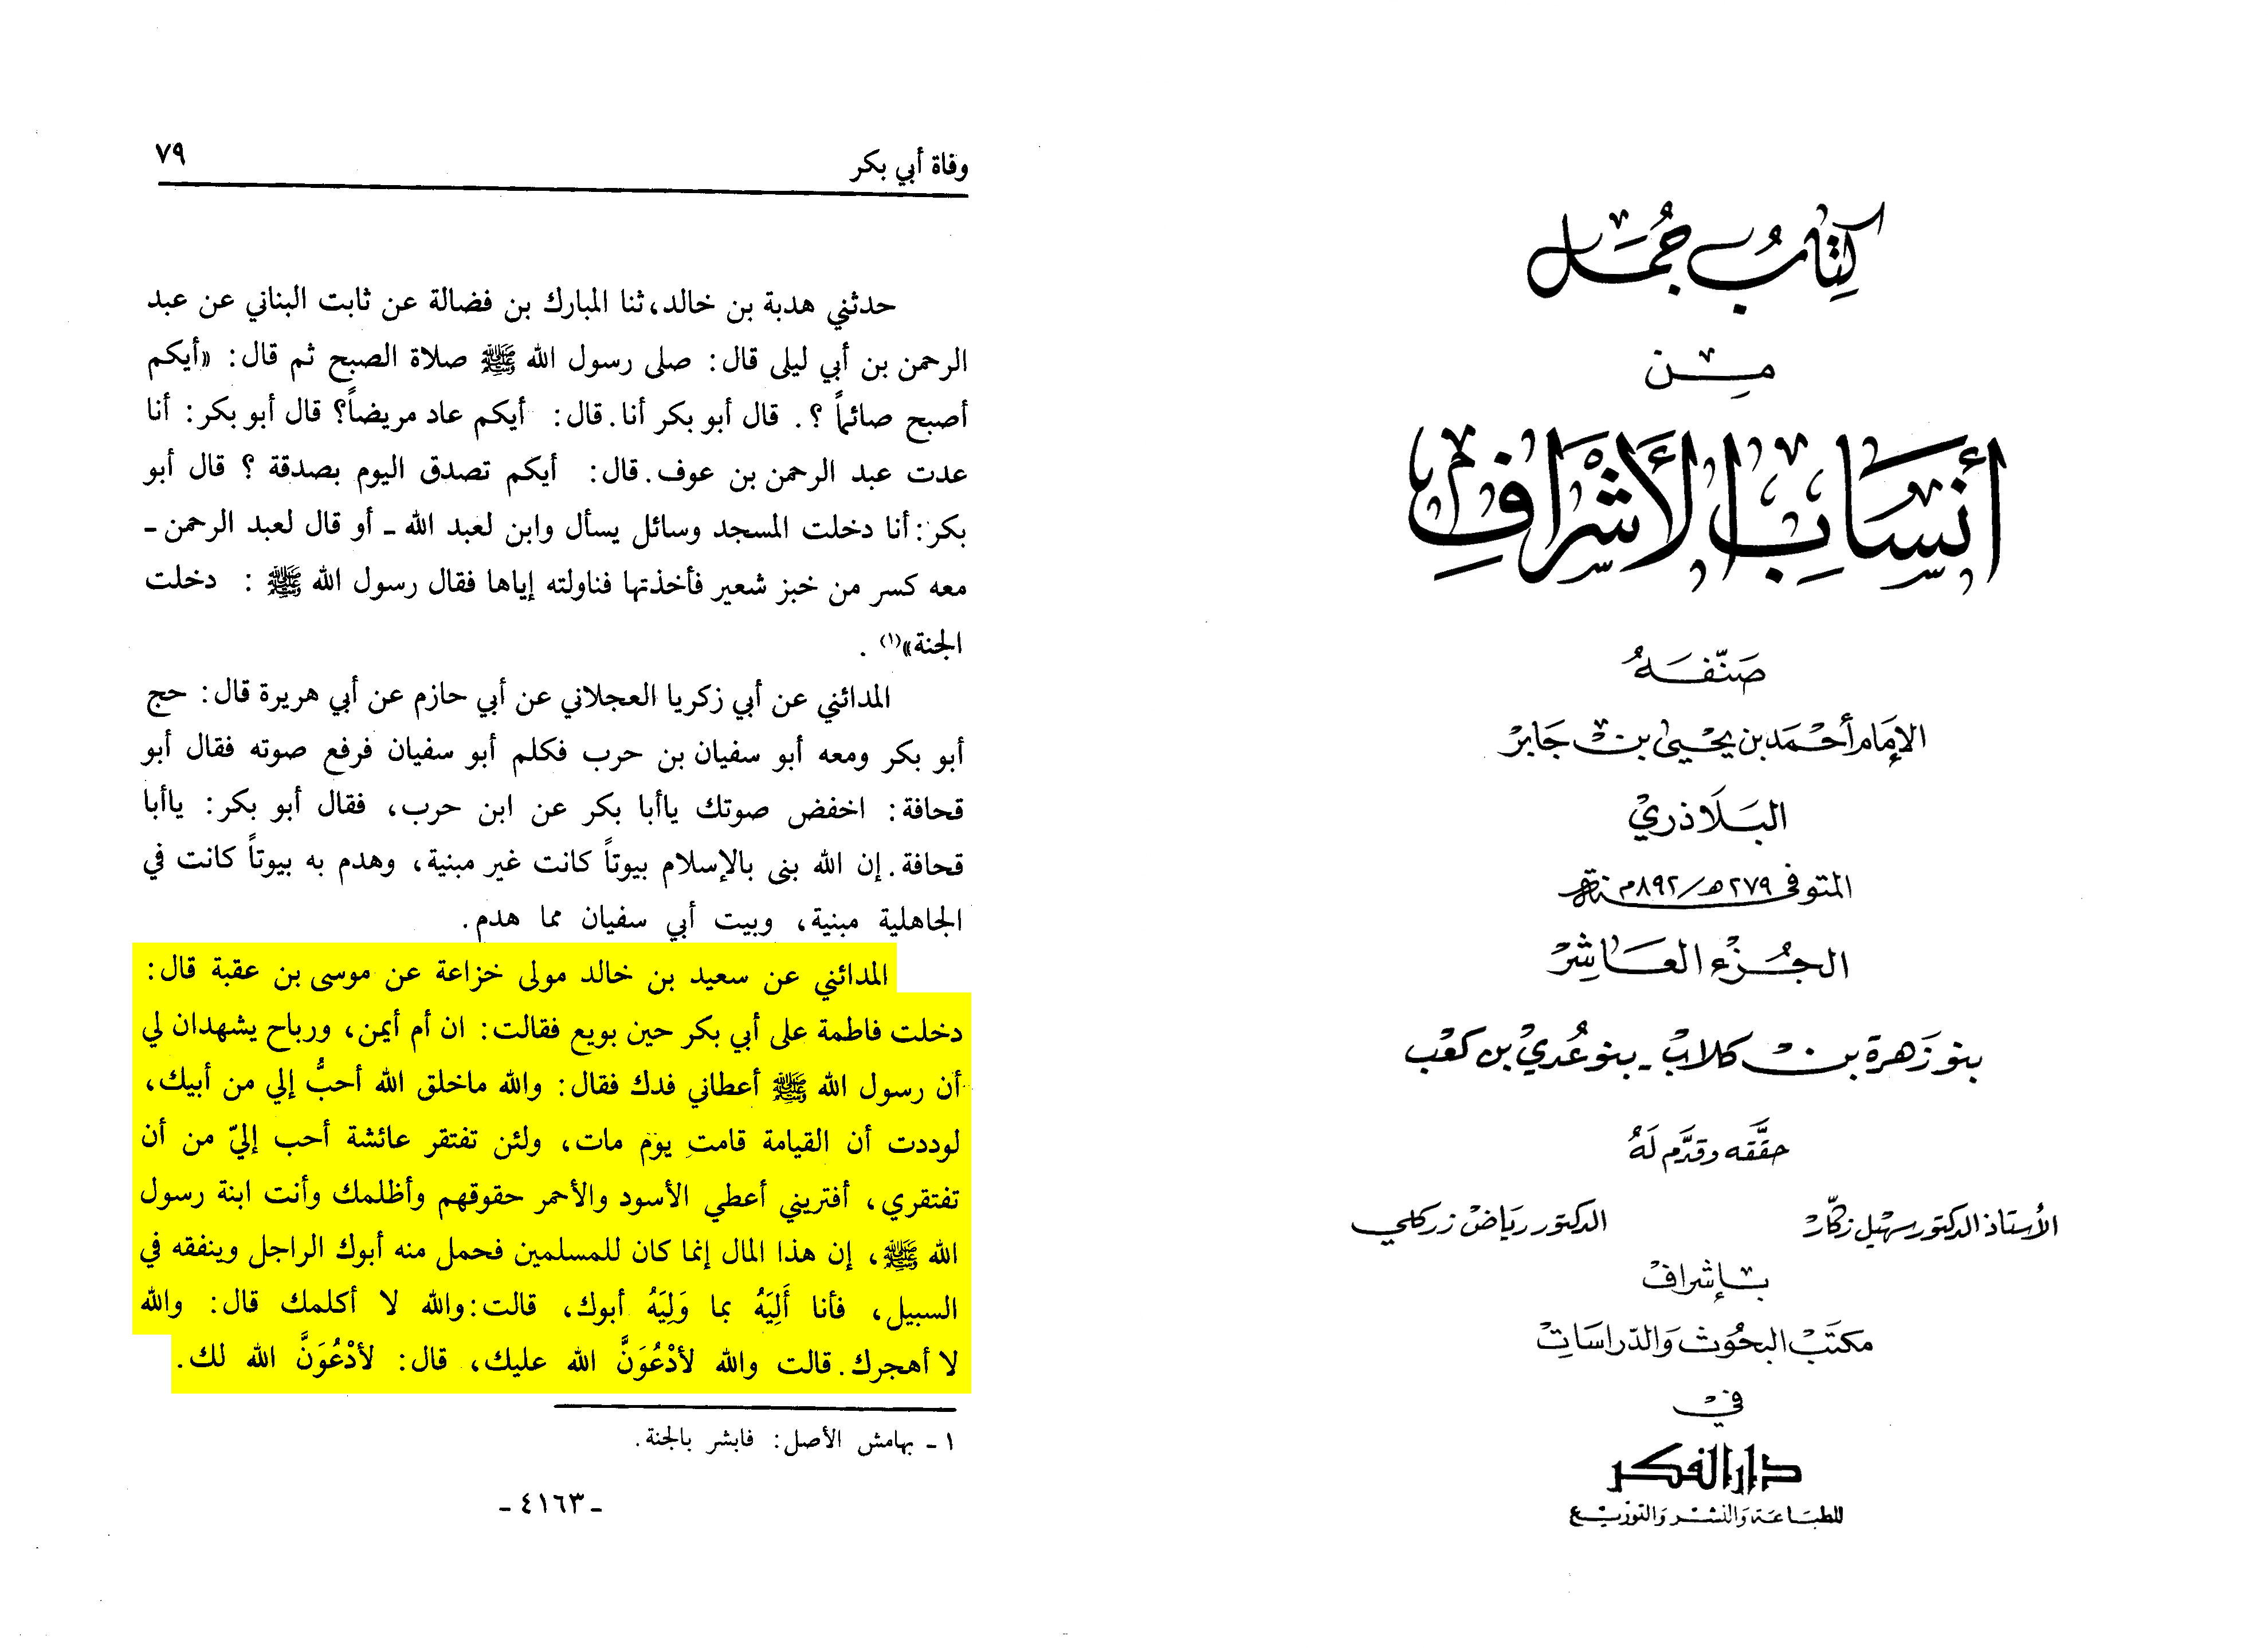 كتاب جمل
من
أنساب الأشراف
صنفه
الإمام أحمد بن يحيى بن جابر
البلاذري
المتوفى ٢٧٩هـ/٨٩٢م
الجزء العاشر
بنو زهرة بن كلاب - بنو عدي بن كعب
حققه وقدم له
الأستاذ الدكتور سهيل زكار الدكتور رياض زركلي
بإشراف
مكتب البحوث والدراسات
في
دار الفكر
للطباعة والنشر والتوزيع
وفاة أبي بكر ٧٩
حدثني هدبة بن خالد، ثنا المبارك بن فضالة عن ثابت البناني عن عبد
الرحمن بن أبي ليلى قال: صلى رسول الله ﷺ صلاة الصبح ثم قال: «أيكم
أصبح صائماً ؟. قال أبو بكر أنا. قال: أيكم عاد مريضاً؟ قال أبو بكر: أنا
عدت عبد الرحمن بن عوف. قال: أيكم تصدق اليوم بصدقة ؟ قال أبو
بكر: أنا دخلت المسجد وسائل يسأل وابن لعبد الله ـ أو قال لعبد الرحمن ـ
معه كسر من خبز شعير فأخذتها فناولته إياها فقال رسول الله ﷺ : دخلت
الجنة»(١) .
المدائني عن أبي زكريا العجلاني عن أبي حازم عن أبي هريرة قال: حج
أبو بكر ومعه أبو سفيان بن حرب فكلم أبو سفيان فرفع صوته فقال أبو
قحافة: اخفض صوتك ياأبا بكر عن ابن حرب، فقال أبو بكر: ياأبا
قحافة. إن الله بنى بالإسلام بيوتاً كانت غير مبنية، وهدم به بيوتاً كانت في
الجاهلية مبنية، وبيت أبي سفيان مما هدم.
المدائني عن سعيد بن خالد مولى خزاعة عن موسى بن عقبة قال:
دخلت فاطمة على أبي بكر حين بويع فقالت: ان أم أيمن، ورباح يشهدان لي
أن رسول الله ﷺ أعطاني فدك فقال: والله ماخلق الله أحبُّ إلي من أبيك،
لوددت أن القيامة قامت يوم مات، ولئن تفتقر عائشة أحب إليّ من أن
تفتقري، أفتريني أعطي الأسود والأحمر حقوقهم وأظلمك وأنت ابنة رسول
الله ﷺ، إن هذا المال إنما كان للمسلمين فحمل منه أبوك الراجل وينفقه في
السبيل، فأنا أَلِيَهُ بما وَلِيَهُ أبوك، قالت: والله لا أكلمك قال: والله
لا أهجرك. قالت والله لأدْعُوَنَّ الله عليك، قال: لأدْعُوَنَّ الله لك.
١ ـ بهامش الأصل: فابشر بالجنة.
ـ ٤١٦٣ ـ